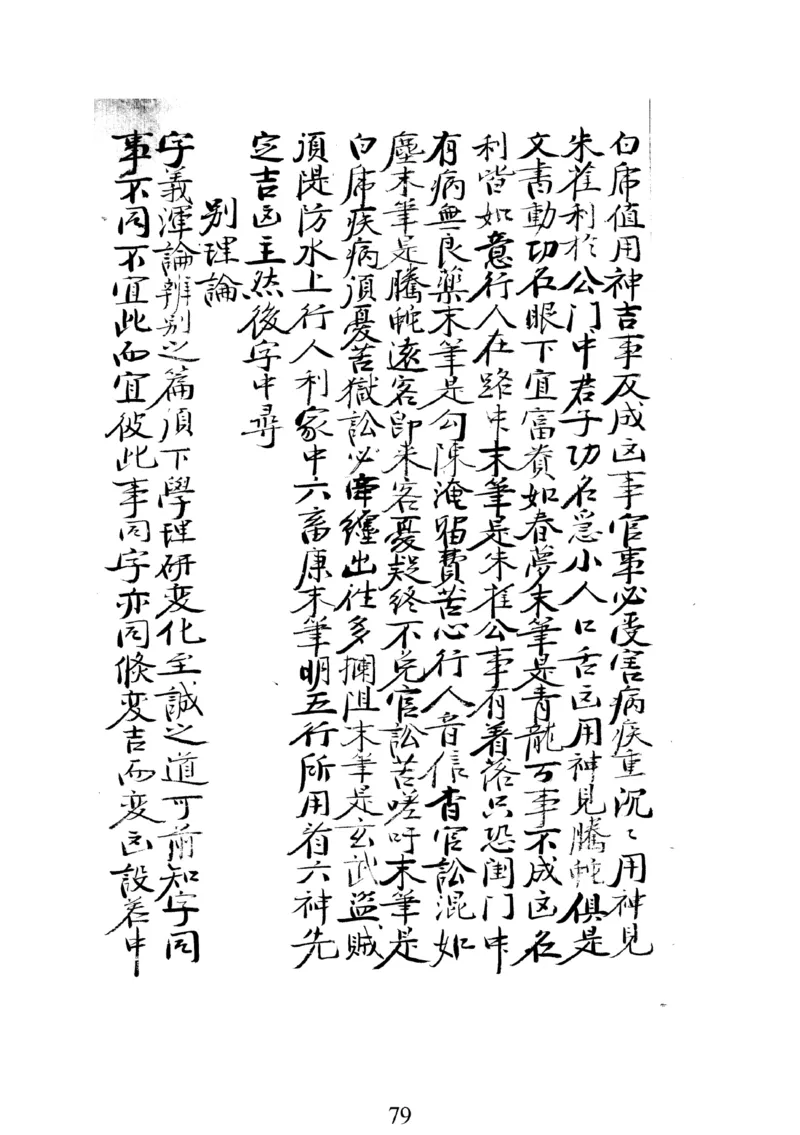 白席值用神吉事反成凶事官事必受害病疾重沉〻用神見
朱雀利於公門中君子功名意小人口舌凶用神見騰蛇俱是
文書動功名眼下宜富貴如春夢末筆是青龍万事不成凶名
利皆如意行人在路中末筆是朱雀公事有着落只恐闺门中
有病無良藥末筆是勾陳淹留費苦心行人音信杳官訟混如
塵末筆是騰蛇遠客即来客憂疑終不免官訟苦嗟吁末筆是
白席疾病須憂苦獄訟必牽纏出往多攔阻末筆是玄武盜賊
須隄防水上行人利家中六畜康末筆明五行所用看六神先
定吉凶主然後字中尋
别理論
字義渾論辨别之篇須下學理研変化至誠之道可前知字同
事不同不宜此而宜彼此事同字亦同倏変吉而変凶設若中
79